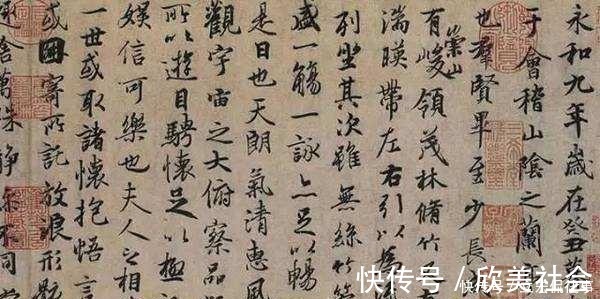 永和九年歲在癸丑
于會稽山陰之蘭
也羣賢畢至少長
有崇山峻領茂林脩竹
湍暎帶左右引以為
列坐其次雖無絲竹
盛一觴一詠亦足以暢
是日也天朗氣清惠風
觀宇宙之大俯察品
所以遊目騁懷足以極
娛信可樂也夫人之相
一世或取諸懷抱悟言
或因寄所託放浪形
舍萬殊靜不同
快传号／欣美社会